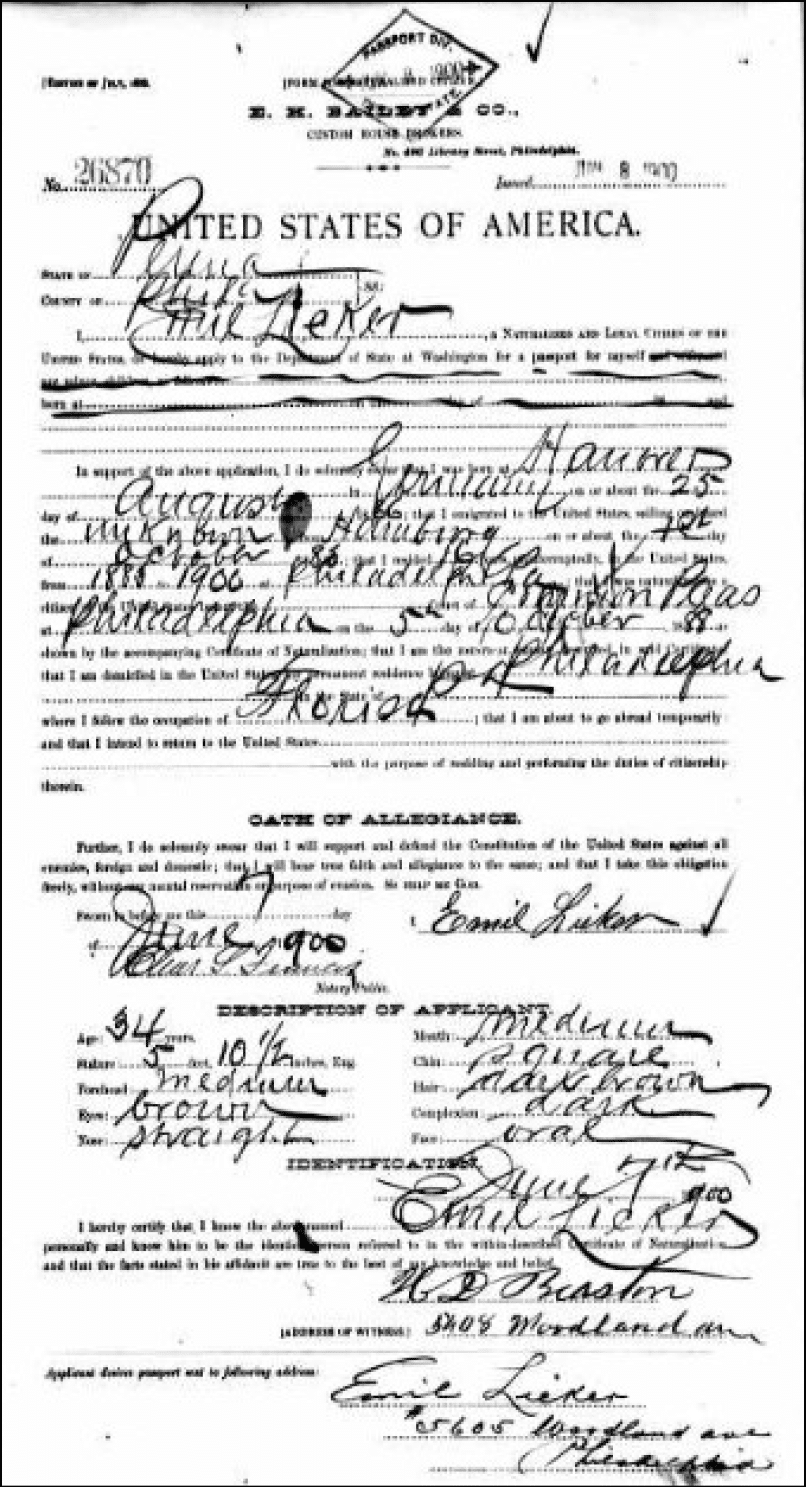 PASSPORT DIV.
[EDITION OF JULY, [FORM FOR NATURALIZED CITIZEN.
E. H. BAILEY & CO.,
CUSTOM HOUSE BROKERS.
Library Street, Philadelphia.
No. 26870 Issued 8 1900
UNITED STATES OF AMERICA.
STATE OF Penna
COUNTY OF Phila SS:
I, Emil Lieker, a NATURALIZED AND LOYAL CITIZEN OF THE
UNITED STATES, do hereby apply to the Department of State at Washington for a passport for myself and wife, and
my minor children as follows:
born at on the day of and
In support of the above application, I do solemnly swear that I was born at Hanover
in Germany on or about the 25
day of August that I emigrated to the United States, sailing on board
the unknown from Hamburg on or about the 12th day
of October that I resided uninterruptedly, in the United States,
from 1900 at Philadelphia that I was naturalized as a
citizen of the United States before the Court of Common Pleas
at Philadelphia on the 5th day of October 88 as
shown by the accompanying Certificate of Naturalization; that I am the person described in said Certificate;
that I am domiciled in the United States, my permanent residence being at Philadelphia
in the State of Pa
where I follow the occupation of Florist; that I am about to go abroad temporarily;
and that I intend to return to the United States
with the purpose of residing and performing the duties of citizenship
therein.
OATH OF ALLEGIANCE.
Further, I do solemnly swear that I will support and defend the Constitution of the United States against all
enemies, foreign and domestic; that I will bear true faith and allegiance to the same; and that I take this obligation
freely, without any mental reservation or purpose of evasion. SO HELP ME GOD.
Sworn to before me this 7 day
of June 1900 Emil Lieker
Chas
Notary Public.
DESCRIPTION OF APPLICANT.
Age: 34 years. Mouth: medium
Stature: 5 feet, 10 1/2 inches, Eng. Chin: square
Forehead: medium Hair: dark brown
Eyes: brown Complexion: dark
Nose: straight Face: oval
IDENTIFICATION.
June 7th 1900
I hereby certify that I know the above named Emil Lieker
personally and know him to be the identical person referred to in the within-described Certificate of Naturalization,
and that the facts stated in his affidavit are true to the best of my knowledge and belief.
H D Beaston
[ADDRESS OF WITNESS] 5408 Woodland av
Applicant desires passport sent to following address:
Emil Lieker
# 5605 Woodland ave
Philadelphia